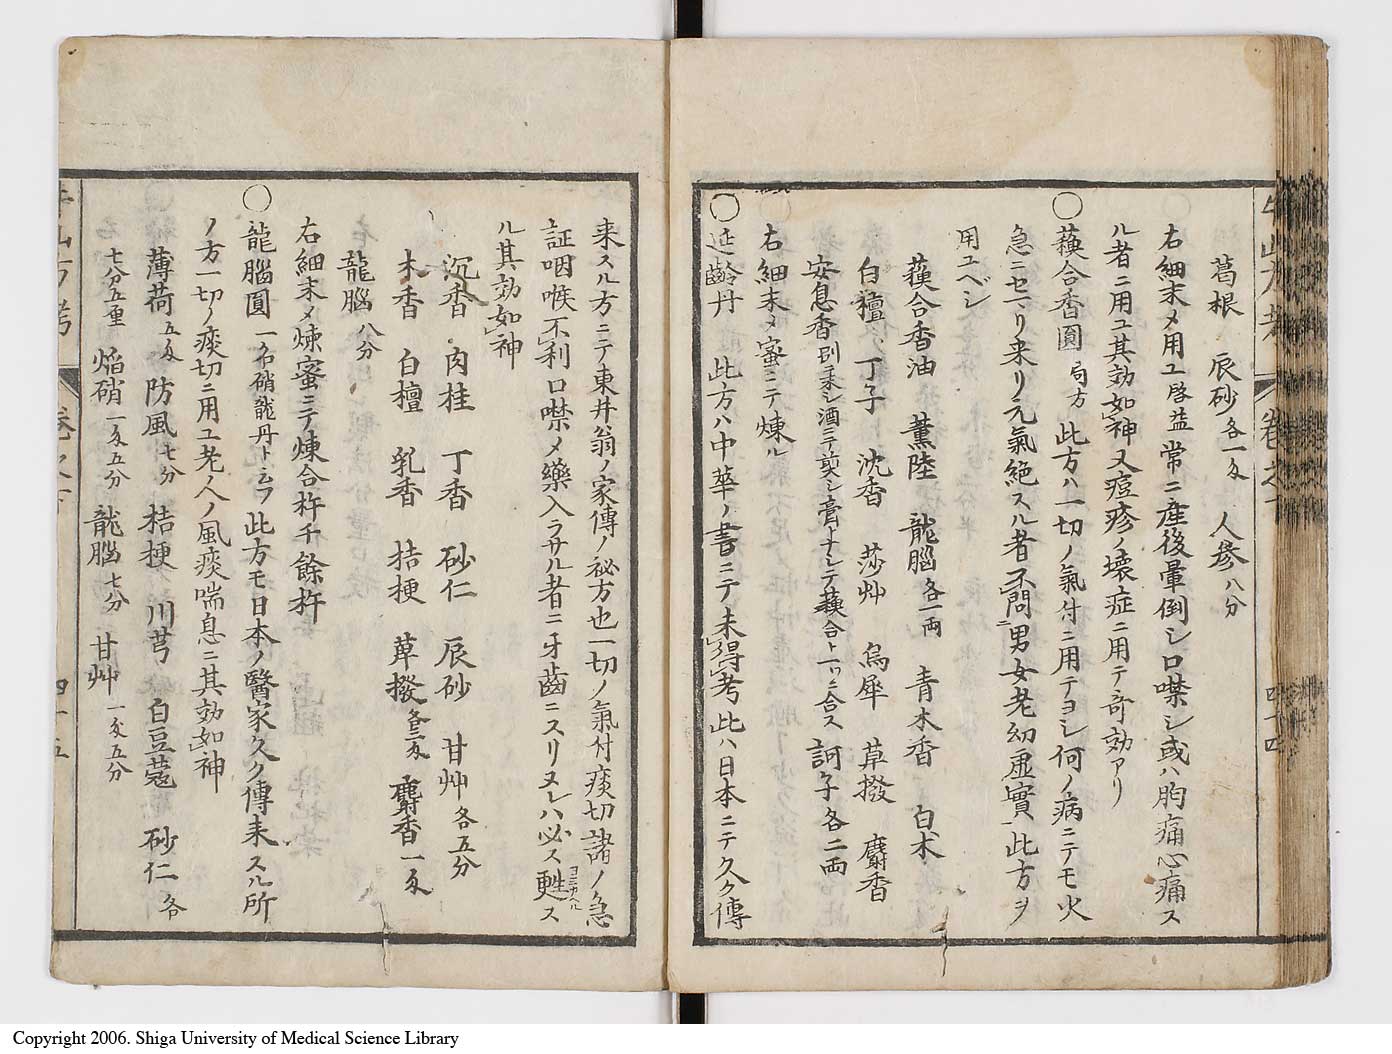 葛根 辰砂各一匁 人参八分
右細末メ用ユ啓益常ニ産後暈倒シ口噤シ或ハ胸痛心痛ス
ル者ニ用ユ其効如神又痘疹ノ壊症ニ用テ奇効アリ
○蘓合香圓局方 此方ハ一切ノ氣付ニ用テヨシ何ノ病ニテモ火
急ニセマリ来リ元氣絶スル者不問男女老幼虚實此方ヲ
用ユベシ
蘓合香油 薫陸 龍腦各一両 青木香 白朮
白檀 丁子 沈香 莎艸 烏犀 草撥 麝香
安息香別末シ酒ニテ煎シ膏トナシテ蘓合ト一ツニ合ス 訶子各二両
右細末メ蜜ニテ煉ル
○延齡丹 此方ハ中華ノ書ニテ未得考此ハ日本ニテ久ク傳
来スル方ニテ東井翁ノ家傳ノ秘方也一切ノ氣付痰切諸ノ急
証咽喉不利口噤メ藥入ラサル者ニ牙齒ニスリヌレハ必ス甦ス
ヨミカヘル
ル其効如神
沉香 肉桂 丁香 砂仁 辰砂 甘艸各五分
木香 白檀 乳香 桔梗 蓽撥各三匁 麝香一匁
龍腦八分
右細末メ煉蜜ニテ煉合杵千餘杵
○龍腦圓一名硝龍丹ト云フ 此方モ日本ノ醫家久ク傳来スル所
ノ方一切ノ痰切ニ用ユ老人ノ風痰喘息ニ其効如神
薄荷五匁 防風七分 桔梗 川芎 白豆蔲 砂仁各
七分五厘 焔硝一匁五分 龍腦七分 甘艸一匁五分
巻之下 四十四
四十五
Copyright 2006. Shiga University of Medical Science Library